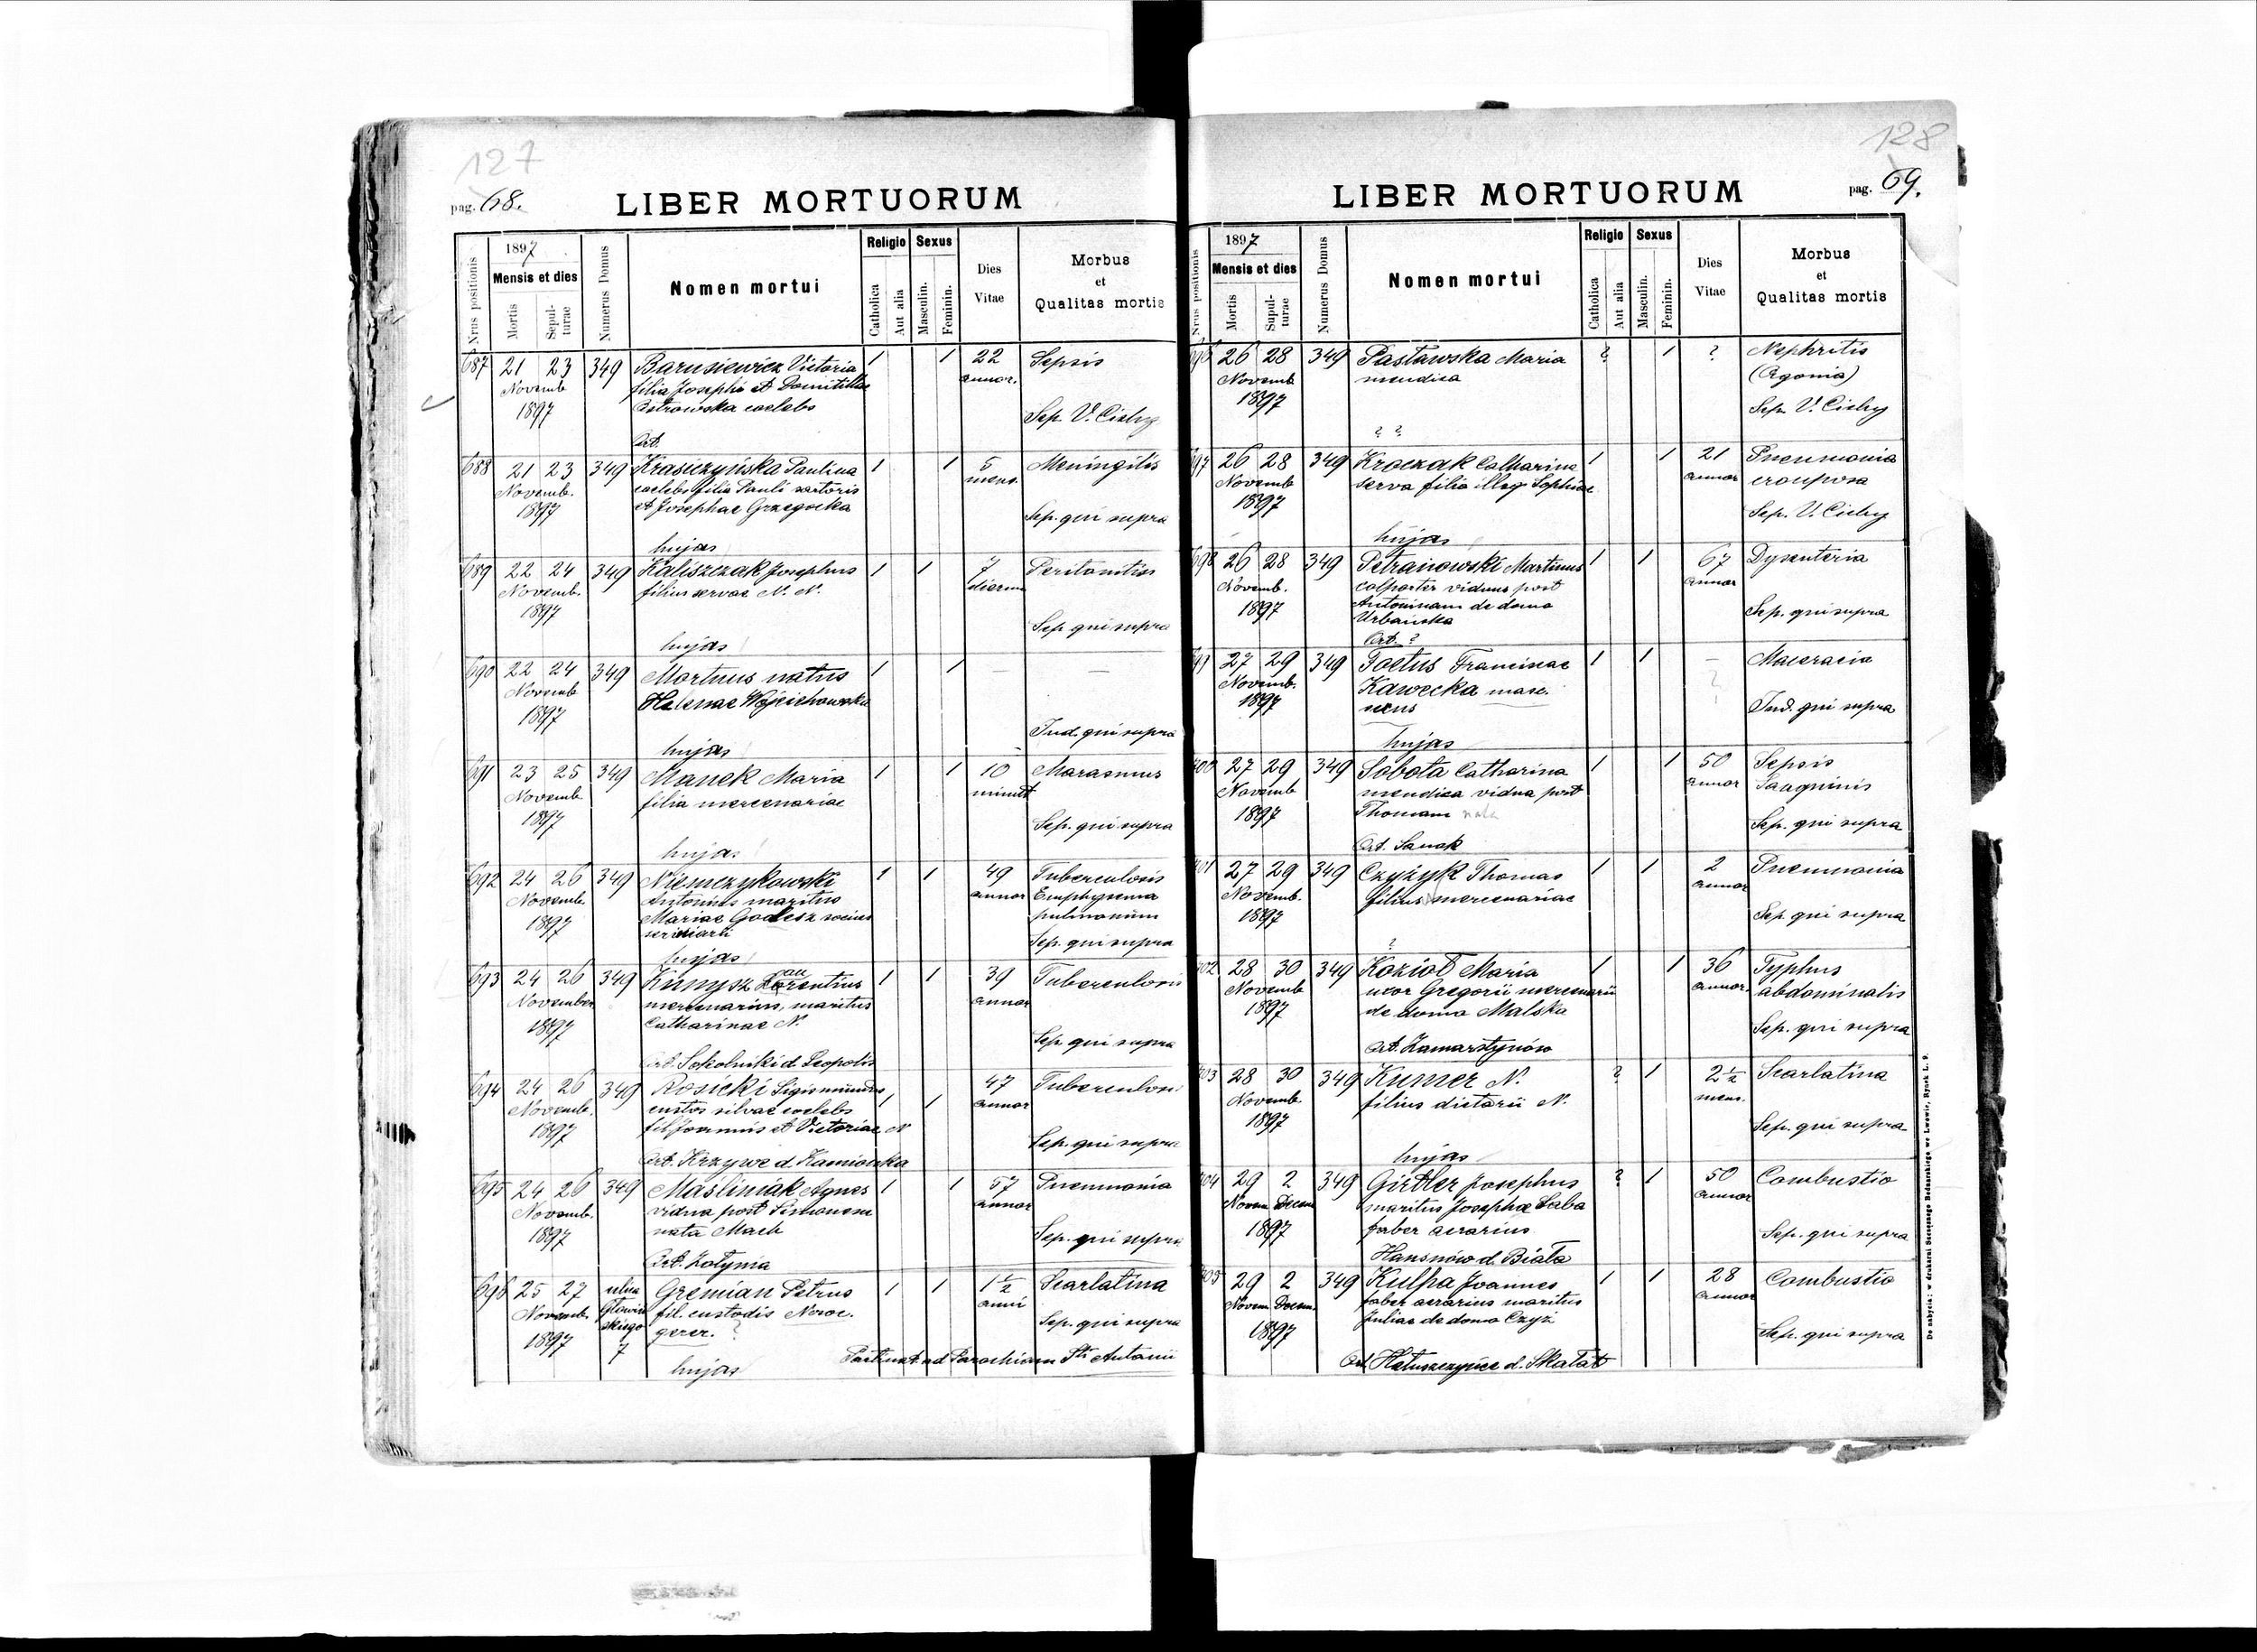 127
pag. 68.
LIBER MORTUORUM
Nrus positionis
1897
Mensis et dies
Mortis
Sepul-
turae
Numerus Domus
Nomen mortui
Religio
Catholica
Aut alia
Sexus
Masculin.
Feminin.
Dies
Vitae
Morbus
et
Qualitas mortis
687 21 23 349 Barusiewicz Victoria 1 1 22 Sepsis
Novemb filia Josephi et Domitillae annor.
1897 Ostrowska coelebs Sep. V. Cichy
Ort.
688 21 23 349 Krasiczyńska Paulina 1 1 5 Meningitis
Novemb. coelebs filia Pauli sartoris mens.
1897 et Josephae Grzegocka Sep. qui supra
hujas
689 22 24 349 Kaliszczak Josephus 1 1 7 Peritonitis
Novemb. filius servae N. N. dierum
1897 Sep qui supra
hujas
690 22 24 349 Mortuus natus 1 1 —
Novemb Helenae Wojciechowska
1897 Ind. qui supra
hujas
691 23 25 349 Manek Maria 1 1 10 Marasmus
Novemb filia mercenariae minut
1897 Sep. qui supra
hujas
692 24 26 349 Niemczykowski 1 1 49 Tuberculosis
Novemb. Antonius maritus annor Emphysema
1897 Mariae Godesz socius pulmonum
Sep. qui supra
hujas
693 24 26 349 Kunysz Laurentius 1 1 39 Tuberculosis
November mercenarius, maritus annor
1897 Catharinae N. Sep qui supra
Ort. Sokolniki d Leopolis
694 24 26 349 Rosicki Sigismundus, 1 1 47 Tuberculosis
Novemb. custos silvae coelebs annor
1897 fil Joannis et Victoriae N Sep. qui supra
Ort. Krzywe d. Kamionka
695 24 26 349 Maśliniak Agnes 1 1 57 Pneumonia
Novemb. vidua post Simonem annor
1897 nata Mach Sep. qui supra
Ort. Żołynia
696 25 27 ulica Gremian Petrus 1 1 1 1/2 Scarlatina
Novemb. Głowiń fil. custodis Noroc. anni
1897 skiego gerer. ? Sep. qui supra
7 hujas Pertinet ad Parochiam Sti Antonii
128
LIBER MORTUORUM
pag. 69.
Nrus positionis
1897
Mensis et dies
Mortis
Supul-
turae
Numerus Domus
Nomen mortui
Religio
Catholica
Aut alia
Sexus
Masculin.
Feminin.
Dies
Vitae
Morbus
et
Qualitas mortis
696 26 28 349 Pastawska Maria ? 1 ? Nephritis
Novemb mendica (Agonia)
1897 Sep. V. Cichy
? ?
697 26 28 349 Kroczak Catharina 1 1 21 Pneumonia
Novemb serva filia illeg. Sophiae annor crouposa
1897 Sep. V. Cichy
hujas
698 26 28 349 Petranowski Martinus 1 1 67 Dysenteria
Novemb. colporter viduus post annor
1897 Antoninam de domo Sep. qui supra
Urbańska
Ort. ?
27 29 349 Foetus Franciscae 1 1 — Maceracia
Novemb. Kawecka masc. ?
1897 sexus Ind. qui supra
hujas
700 27 29 349 Sobota Catharina 1 1 50 Sepsis
Novemb mendica vidua post annor Sanguinis
1897 Thomam nata Sep. qui supra
Ort. Sanok
701 27 29 349 Czyżyk Thomas 1 1 2 Pneumonia
Novemb. filius mercenariae annor
1897 Sep qui supra
?
702 28 30 349 Kozioł Maria 1 1 36 Typhus
Novemb uxor Gregorii mercenarii annor. abdominalis
1897 de domo Malska Sep. qui supra
Ort. Zamarstynów
703 28 30 349 Kumer N. ? 1 2 1/2 Scarlatina
Novemb. filius dietarii N. mens.
1897 Sep. qui supra
hujas
704 29 2 349 Girtler Josephus ? 1 50 Combustio
Novem Decem maritus Josephae Saba annor
1897 faber aerarius Sep. qui supra
Hansnów d. Biała
705 29 2 349 Kulpa Joannes 1 1 28 Combustio
Novem Decem. faber aerarius maritus annor
1897 Juliae de domo Czyż Sep. qui supra
Ort. Hałuszczyńce d. Skałat
Do nabycia: w drukarni Szczęsnego Bednarskiego we Lwowie, Rynek L. 9.